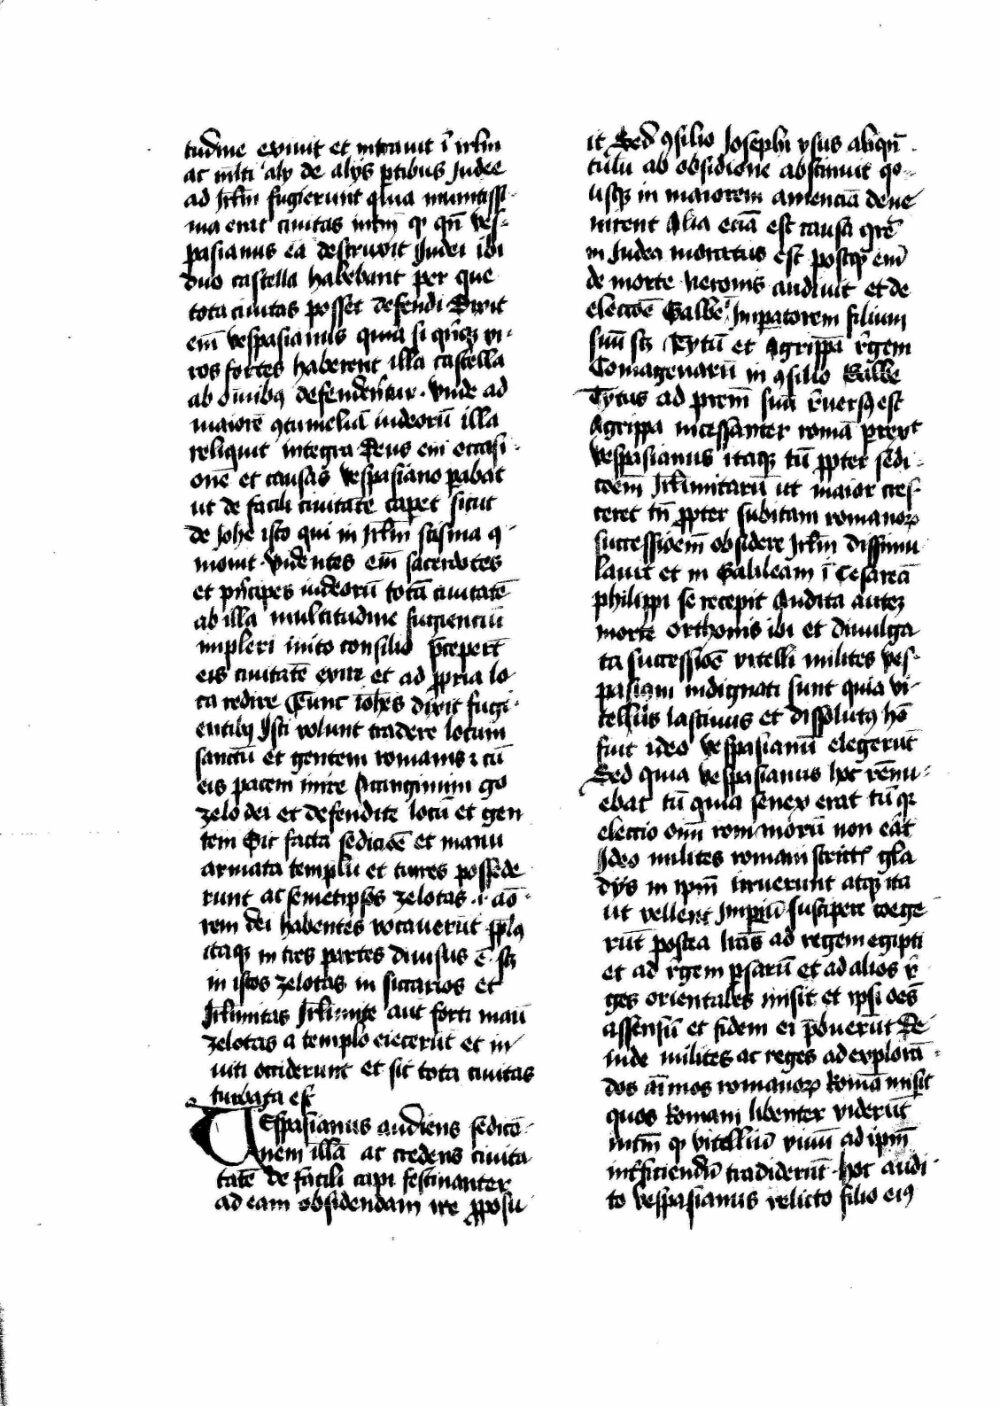 tudine exiuit et intrauit ī irl̄m
ac ml̄ti aly de alys ꝑtibus Judee
ad Jrl̄m fugierunt quia munitissi-
ma erat ciuitas intm̄ ꝙ qn̄ ves-
pasianus eā destruxit Judei ibi
duo castella habebant per que
tota ciuitas posset defendi Dixit
em̄ vespasianus quia si qͥnqꝫ vi-
ros fortes haberent illa castella
ab oīnibꝫ defenderētur. vnde ad
maiorē ꝯtumeliā iudeorū illa
reliquit integra Deus em̄ occasi-
onē et causas vespasiano ꝑabat
ut de facili ciuitatē caꝑet sicut
de Johē isto qui in Jrl̄m scisma ꝯ-
mouit. videntes em̄ sacerdotes
et pͥncipes iudeorū totā ciuitatē
ab illa multitudine fugienciū
impleri inito consilio p̄ceperūt
eis ciuitatē exire et ad ꝓpria lo-
ca redire Tunc Joh̄es dixit fugi-
entibꝫ Isti volunt tradere locum
sanctū et gentem romanis ⁊ cū
eis pacem inire Accingimini go
zelo dei et defendite locū et gen
tem Sic facta sedicōe et manu
armata templū et turres possede
runt ac semetipsos zelotas .i. aō-
rem dei habentes vocauerūt ppl̄s
itaqꝫ in tres partes diuisus ē scꝫ
in istos zelotas in siccarios et
Jrl̄imitas Jrl̄imite aut forti manu
zelotas a templo eiecerūt et m
ulti occiderunt et sic tota ciuitas
turbata est
Vespasianus audiens sedicō-
nem illā ac credens ciuita
tatē de facili capi festinanter
ad eam obsidendam ire ꝓposu-
it Sed ꝯsilio Josephi vsus aliqn̄-
tulū ab obsidione abstinuit qo-
usqꝫ in maiorem amenciā deue
nirent Alia eciā est causa qrē
in Judea moratus est postqꝫ em̄
de morte neronis audiuit et de
electiōe Galbe Imꝑatorem filium
suū scꝫ Tytū et Agrippā rͤgem
Comagenarū in ꝯsilio Galbe
Tytus ad prem̄ suū rͤuersꝫ est
Agrippa incessanter romā ꝑrexit
vespasianus itaqꝫ tū ꝓpter sedi-
cōem Jrl̄imitarū ut maior cres-
ceret tn̄ ꝓpter subitam romanoꝝ
successiōem obsidere Jrl̄m dissimu
lauit et in Galileam ī Cesareā
philippi se recepit Audita autez
morte orthonis ibi et diuulga
ta successiōe vitelli milites ves-
pasiani indignati sunt quia vi-
tellius lasciuus et dissolutꝫ hō
fuit ideo vespasianū elegerūt
Sed quia vespasianus hoc rēnu-
ebat tū quia senex erat tū qꝫ
electio oīm romanorū non eāt
Ideo milites romani strictꝭ gla
dys in ipm̄ irruerunt atqꝫ ita
ut vellent Imꝑiū suscipere coege
rūt postea lrās ad regem egipti
et ad rͤgem ꝑsarū et ad alios rͤ
ges orientales misit et ipsi oēs
assensū et fidem ei p̄buerūt De
inde milites ac reges ad explorā-
dos aīmos romanoꝝ Romā misit
quos Romani libenter viderūt
intm̄ ꝙ vitelliū viuū ad ipm̄
int̄ficiendū tradiderūt. hoc audi
to vespasianus relicto filio eiꝫ